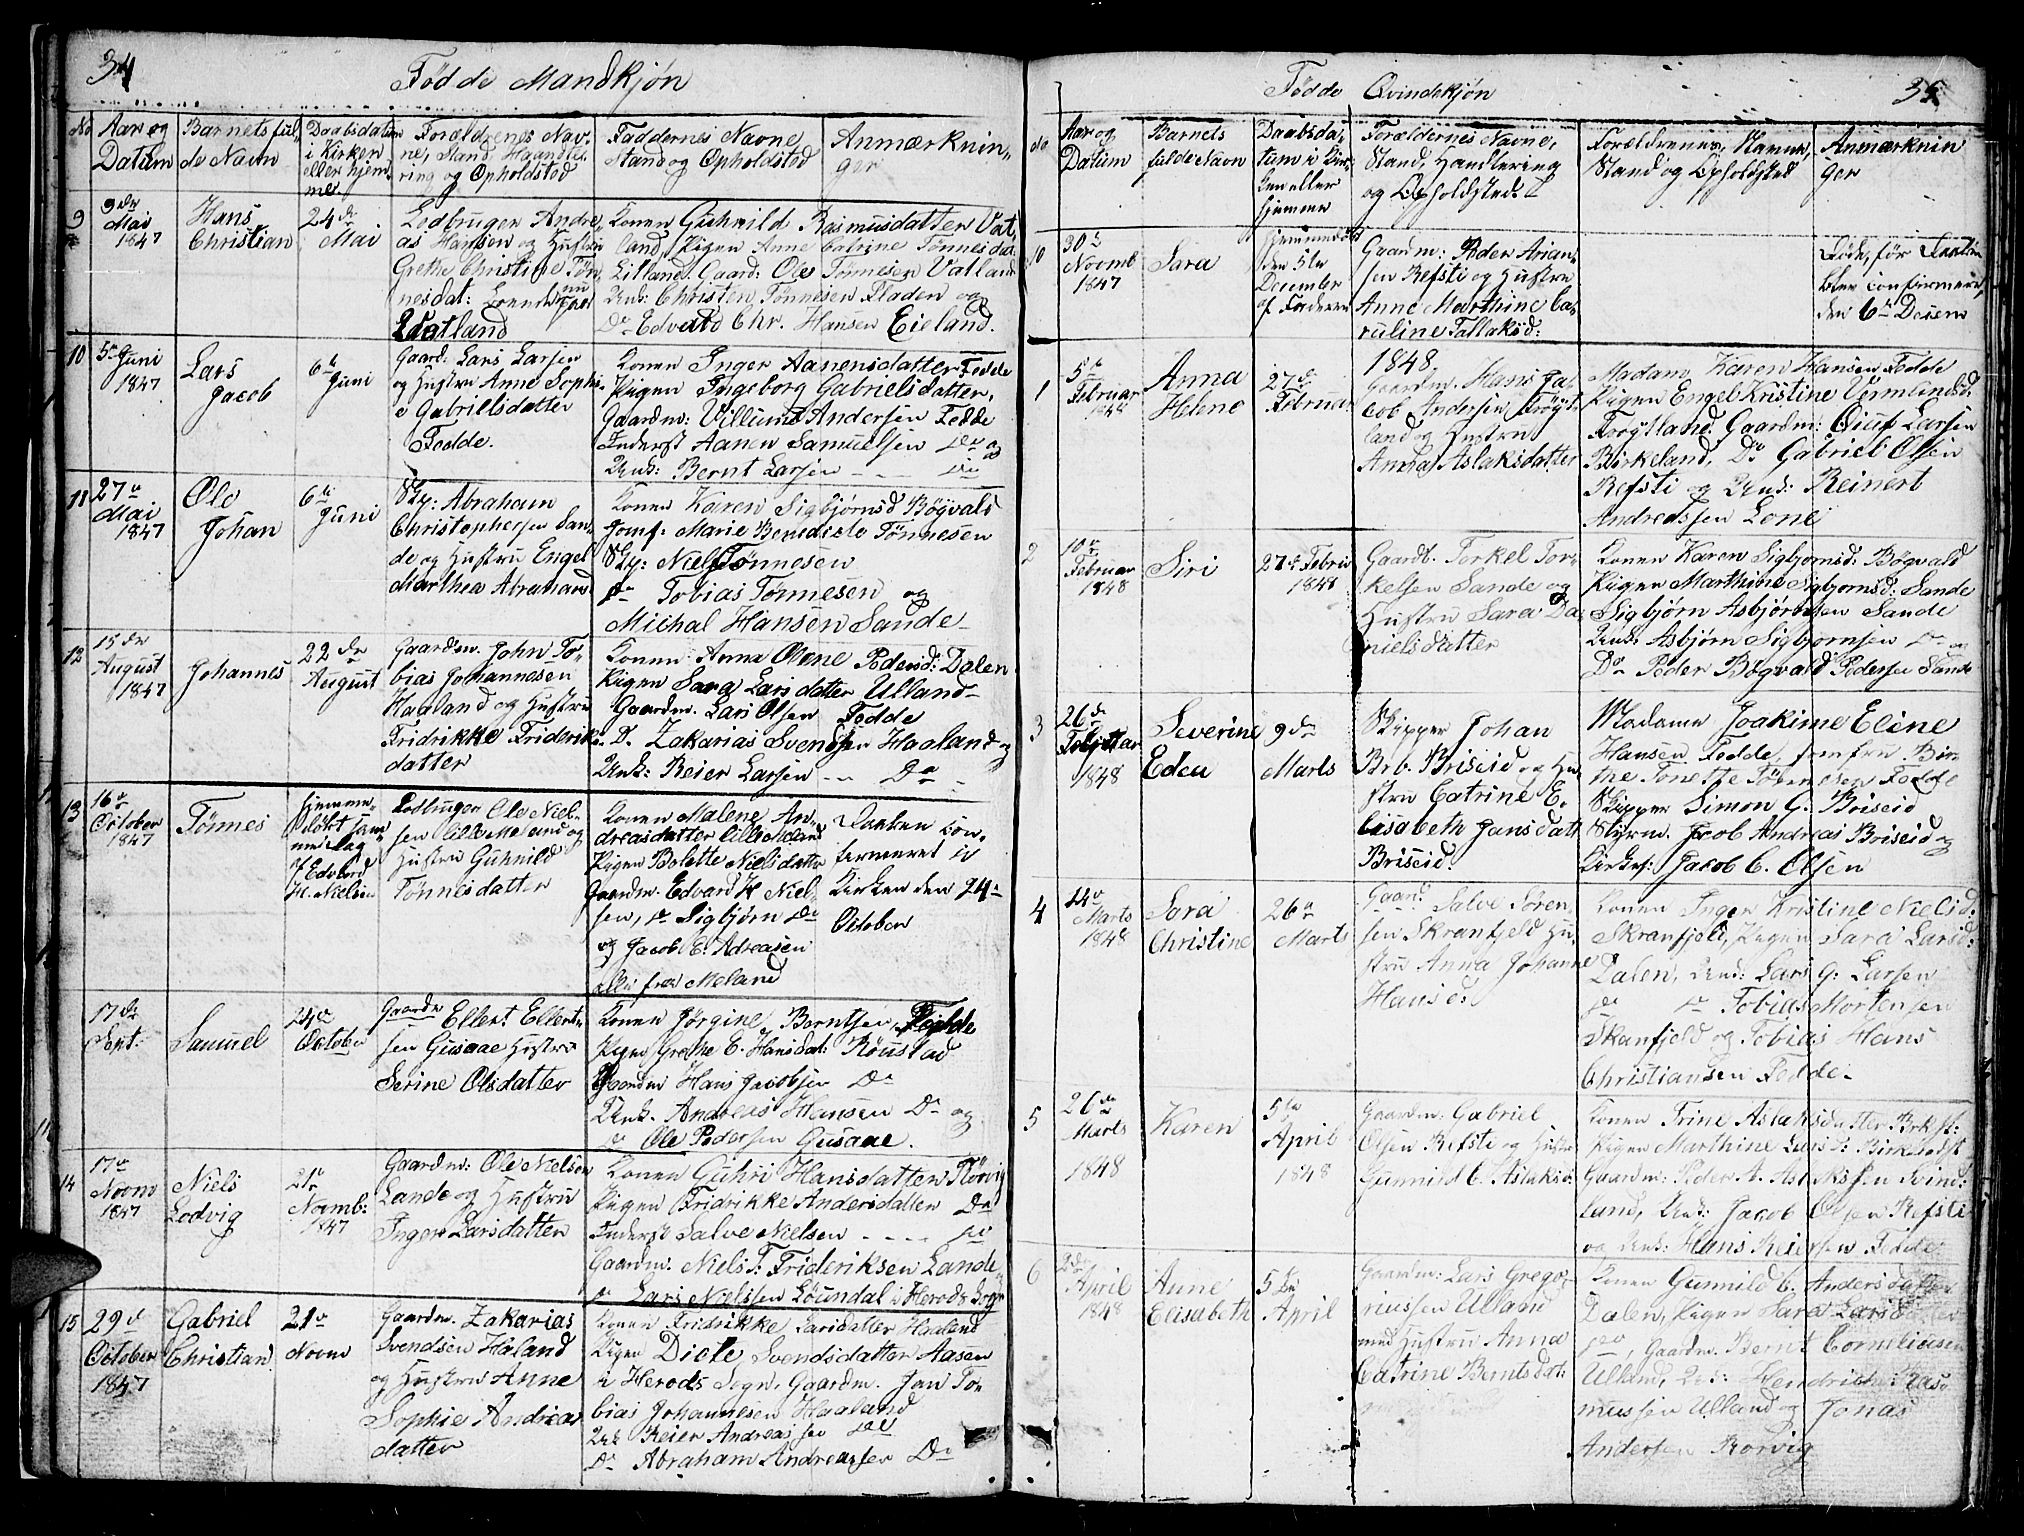 34
Fødde Mandkjøn
No
Aar og
Datum
Barnets ful-
de Navn
Daabsdatum
i Kirken
eller hjem-
me.
Forældrenes Nav-
ne, Stand, Haandte-
ring og Opholdsted
Faddernes Navne,
Stand og Opholdsted
Anmærknin-
ger
9
9de
Mai
1847
Hans
Christian
24de
Mai
Ledbruger Andre-
as Hansen og Hustru
Grethe Christine Tøn-
nesdat:
Vatland
Konen Guhnild Rasmusdatter Vat-
land, Pigen Anne Catrine Tønnesdat
Litland. Gaard: Ole Tønnesen Vatland
Unk: Christen Tønnesen Fladen og
Do Edvard Chr. Hansen Eieland.
10
5te Juni
1847
Lars
Jacob
6te
Juni
Gaard: Lars Larsen
og Hustru Anne Sophi-
e Gabrielsdatter
Fedde.
Konen Inger Aanensdatter Fedde
Pigen Ingeborg Gabrielsdatter,
Gaardm: Villum Andersen Fedde
Inderst Aanen Samuelsen Do og
Unk: Bernt Larsen - - Do
11
27de
Mai
1847
Ole
Johan
6te
Juni
Sty: Abraham
Christophersen San-
de og Hustru Engel
Marthea Abrahamsd
Konen Karen Sigbjørnsd Bøgvals
Jomf: Marie Benedicte Tønnesen
Sty: Niels Tønnesen
Do Tobias Tønnesen og
Michal Hansen Sande
12
15de
August
1847
Johannes
22de
August
Gaardm. John To-
bias Johannesen
Haaland og Hustru
Fridrikke Frideriks-
datter
Konen Anna Olene Pedersd: Dalen
Pigen Sara Larsdatter Ulland
Gaardm. Lars Olsen Fedde
D. Zakarias Svendsen Haaland og
Unk: Reier Larsen - - Do
13
16de
October
1847
Tønnes
hjemme-
døbt sam-
me dag
af Edvard
H. Nielsen
Ledbruger Ole Niel-
sen Lille Meland og
Hustru Guhnild
Tønnesdatter
Konen Malene An-
dreasdatter Lille Meland
Pigen Bolette Nielsdatter
Gaardm. Edvard H Niel-
sen, Do Sigbjørn Do
og Jacob E. Adreasen
alle fra Meland
Daaben con-
fermeret i
Kirken den 24de
October
17de
Sept.
Samuel
24de
October
Gaardm Ellert Ellert-
sen Gusaae Hustru
Serine Olsdatter
Konen Jørgine Berntsen, Fedde
Pigen Grethe E. Hansdat: Røustad
Gaardm Hans Jacobsen Do
Unk. Andreas Hansen Do og
Do Ole Pedersen Gusaae.
14
17de
Novm
1847
Niels
Ledvig
21de
Novmb:
1847
Gaardm: Ole Nielsen
Lande og Hustru
Inger Larsdatter
Konen Guhri Hansdatter Rørvig
Pigen Fridrikke Andersdatter Do
Inderst Salve Nielsen - - - Do
Gaardm: Niels T: Frideriksen Lande
Do Lars Nielssen Løundal i Herods Sogn
15
29de
October
1847
Gabriel
Christian
21de
Novm
Gaardm. Zakarias
Svendsen Haland
og Hustru Anne
Sophie Andreas
datter
Konen Fridrikke Larsdatter Haaland
Pigen Diete Svendsdatter Aasen
i Herods Sogn, Gaardm. Jan To-
bias Johannesen Haaland
Unk Reier Andreassen Do
Do Abraham Andreassen Do
35
Fødde Qvindekjøn
No
Aar og
Datum
Barnets
fulde Navn
Daabsda-
tum i Kir-
ken eller
hjemme
Forældernes Navne,
Stand, Handtering
og Opholdsted.
Forældrenes, Navne,
Stand og Opholdsted
Anmærknin
ger
10
30te
Novmb
1847
Sara
hjemmedøbt
den 5te
December
af Faderen
Gaardm: Peder Arian-
sen Refsti og Hustru
Anne Marthine Ca-
ruline Tallaksd:
Døde, før Daaben
blev confirmeret,
den 6te Decem
1848
1
5te
Februar
1848
Anna
Helene
27de
Februar
Gaardm. Hans Ja-
cob Andersen Frøyt-
land og Hustru
Anna Aslaksdatter
Madam Karen Hansen Fedde
Pigen Engel Kristine Vermundsd:
Frøytland. Gaardm: Oluf Larsen
Birkeland, Do Gabriel Olsen
Refsti og Unk: Reinert
Andreassen Lone
2
10de
Februar
1848
Siri
27de Februar
1848
Gaardt. Torkel Tor-
kelsen Sande og
Hustru Sara Da-
nielsdatter
Konen Karen Sigbjornsd: Bøgvald
Pigen Marthine Sigbjornsd: Sande
Sigbjørn Asbjørnsen Sande
Unk: Asbjørn Sigbjornsen Do og
Do Peder Bøgvald Pedersen Sande
3
26de
Februar
1848
Severine
Edeu
9de
Marts
Skipper Johan
Brb. Briseid og Hu-
stru Catrine E-
lisabeth Jansdatt
Briseid.
Madame Joakime Eline
Hansen Fedde, Jomfru Bir-
the Tonette Tønnesen Fedde
Skipper Simon G. Briseid
Styrm. Jacob Andreas Briseid og
Kirkes: Jacob C. Olsen
4
14de
Marts
1848
Sara
Christine
26de
Marts
Gaard Salve Søren-
sen Skranfjeld Hu-
stru Anna Johanne
Hansd:
Konen Inger Kristine Nielsd:
Skranfjeld, Pigen Sara Larsd:
Dalen, Unk: Lars G: Larsen
Do Do Tobias Mortensen
Skanfjeld og Tobias Hans
Christiansen Fedde.
5
26de
Marts
1848
Karen
5te
April
1848
Gaardm: Gabriel
Olsen Refsti og Hustru
Gunnild C. Aslaksd.
Konen Trine Aslaksdatter Birk st:
Pigen Marthine Larsd: Birkeland
Gaardm: Peder A. Aslaksen Svind-
land, Unk: Jacob Olsen Refsti
og Unk: Hans Reiersen Fedde
6
2de
April
1848
Anne
Elisabeth
5te
April
Gaardm: Lars Grego-
riussen Ulland
med Hustru Anna
Catrine Berntsdat:
Konen Gunnild C. Andersdatter
Dalen, Pigen Sara Larsd
Do, Gaardm. Bernt Corneliusen
Ulland, Unk: Hendrich Ras-
mussen Ulland og Jonas
Andersen Rørvig